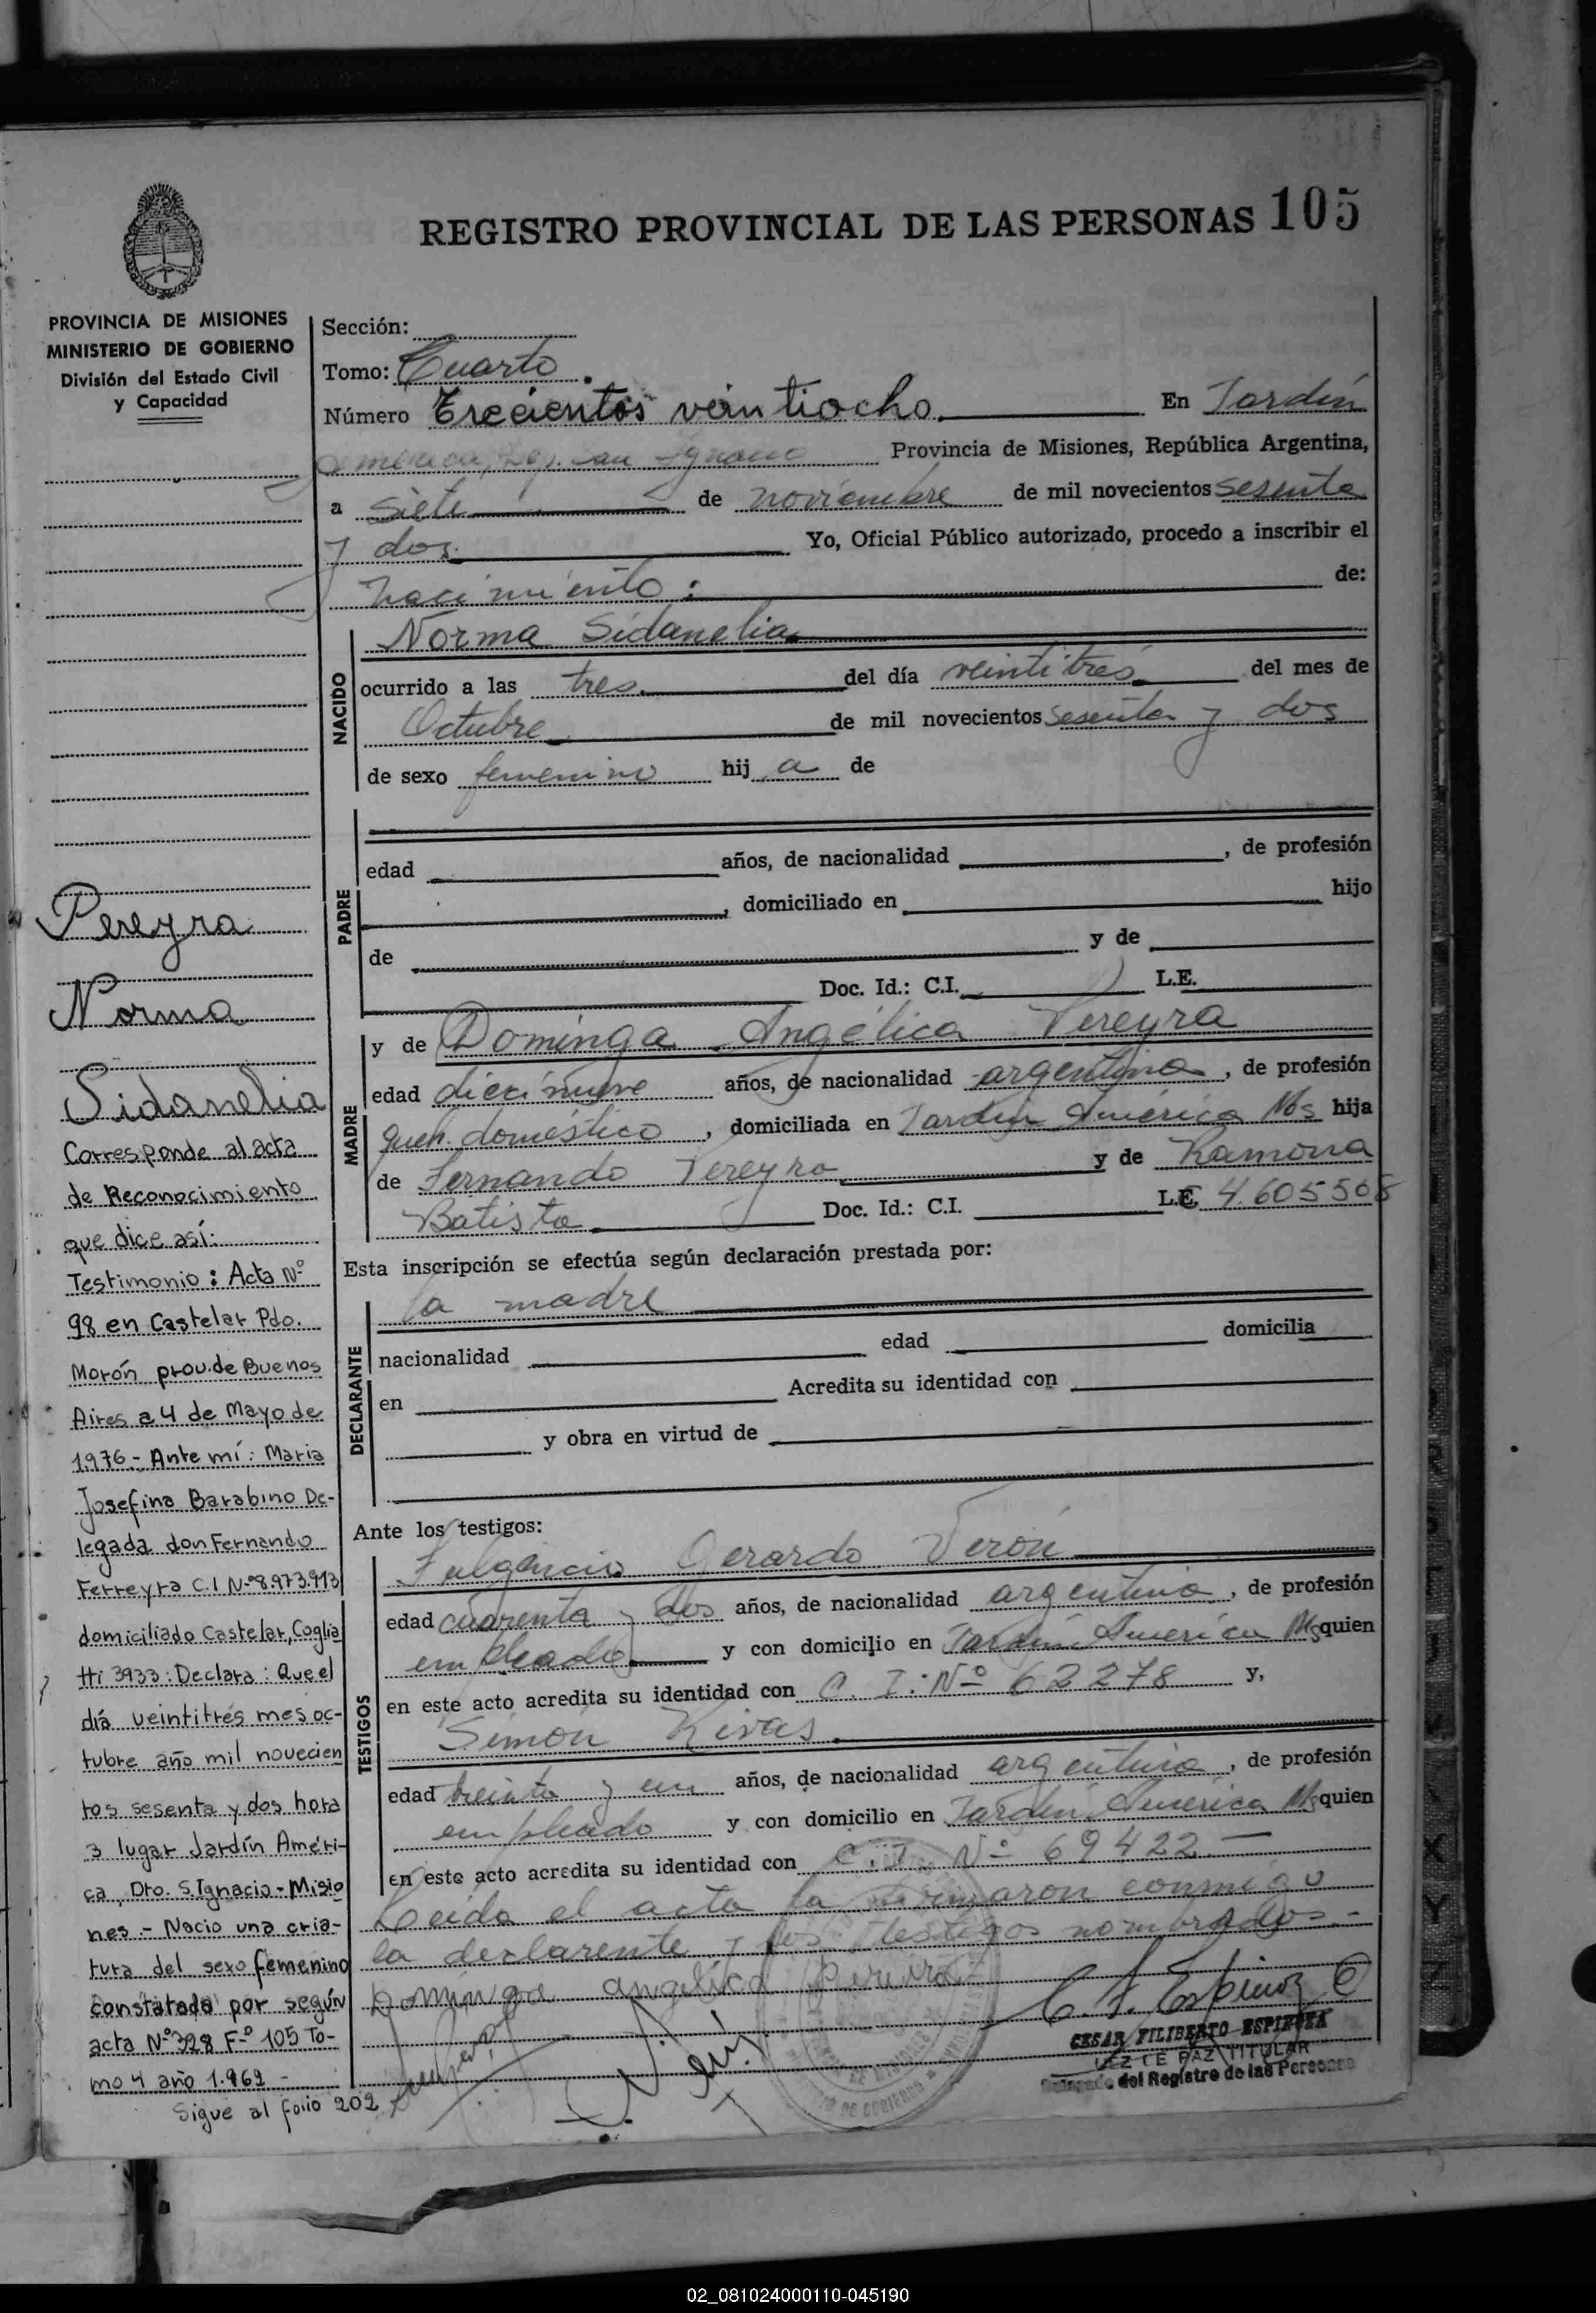 REGISTRO PROVINCIAL DE LAS PERSONAS 105
PROVINCIA DE MISIONES
MINISTERIO DE GOBIERNO
División del Estado Civil
y Capacidad
Sección:
Tomo: Cuarto.
Número Trecientos veintiocho. En Jardín
América, Dep. San Ignacio Provincia de Misiones, República Argentina,
a siete de noviembre de mil novecientos sesenta
y dos. Yo, Oficial Público autorizado, procedo a inscribir el
nacimiento: de:
NACIDO
Norma Sidanelia
ocurrido a las tres. del día veintitres del mes de
Octubre de mil novecientos sesenta y dos
de sexo femenino hij a de
PADRE
edad años, de nacionalidad , de profesión
, domiciliado en hijo
de y de
Doc. Id.: C.I. L.E.
MADRE
y de Dominga Angélica Pereyra
edad diecinueve años, de nacionalidad argentina, de profesión
queh. doméstico, domiciliada en Jardín América Ms hija
de Fernando Pereyra y de Ramona
Batista Doc. Id.: C.I. L.E. 4.605508
Esta inscripción se efectúa según declaración prestada por:
DECLARANTE
la madre
nacionalidad edad domicilia
en Acredita su identidad con
y obra en virtud de
Ante los testigos:
TESTIGOS
Fulgencio Gerardo Verón
edad cuarenta y dos años, de nacionalidad argentina, de profesión
empleado y con domicilio en Jardín América Ms quien
en este acto acredita su identidad con C. I. Nº 62278 y,
Simón Rivas.
edad treinta y un años, de nacionalidad argentina, de profesión
empleado y con domicilio en Jardín América Ms quien
en este acto acredita su identidad con C. I. Nº 69422
Leida el acta la firmaron conmigo
la declarente y los testigos nombrados.-
Dominga angelica Pereira
C. F. Espinoza
CESAR FILIBERTO ESPINOZA
JUEZ DE PAZ TITULAR
Delegado del Registro de las Personas
Pereyra
Norma
Sidanelia
Corresponde al acta
de Reconocimiento
que dice así:
Testimonio: Acta Nº
98 en Castelar Pdo.
Morón prov. de Buenos
Aires a 4 de Mayo de
1976 - Ante mí: Maria
Josefina Barabino De-
legada don Fernando
Ferreyra C.I Nº 8.973.913
domiciliado Castelar, Coglia
tti 3933: Declara: Que el
día veintitrés mes oc-
tubre año mil novecien
tos sesenta y dos hora
3 lugar Jardín Améri-
ca, Dto. S. Ignacio - Misio
nes.- Nacio una cria-
tura del sexo femenino
constatado por según
acta Nº 328 Fº 105 To-
mo 4 año 1.962 -
Sigue al folio 202
02_081024000110-045190